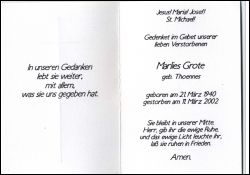 In unseren Gedanken
lebt sie weiter,
mit allem,
was sie uns gegeben hat.
Jesus! Maria! Josef!
St. Michael!
Gedenket im Gebet unserer
lieben Verstorbenen
Marlies Grote
geb. Thoennes
geboren am 21. März 1940
gestorben am 11. März 2002
Sie bleibt in unserer Mitte.
Herr, gib ihr die ewige Ruhe,
und das ewige Licht leuchte ihr,
laß sie ruhen in Frieden.
Amen.